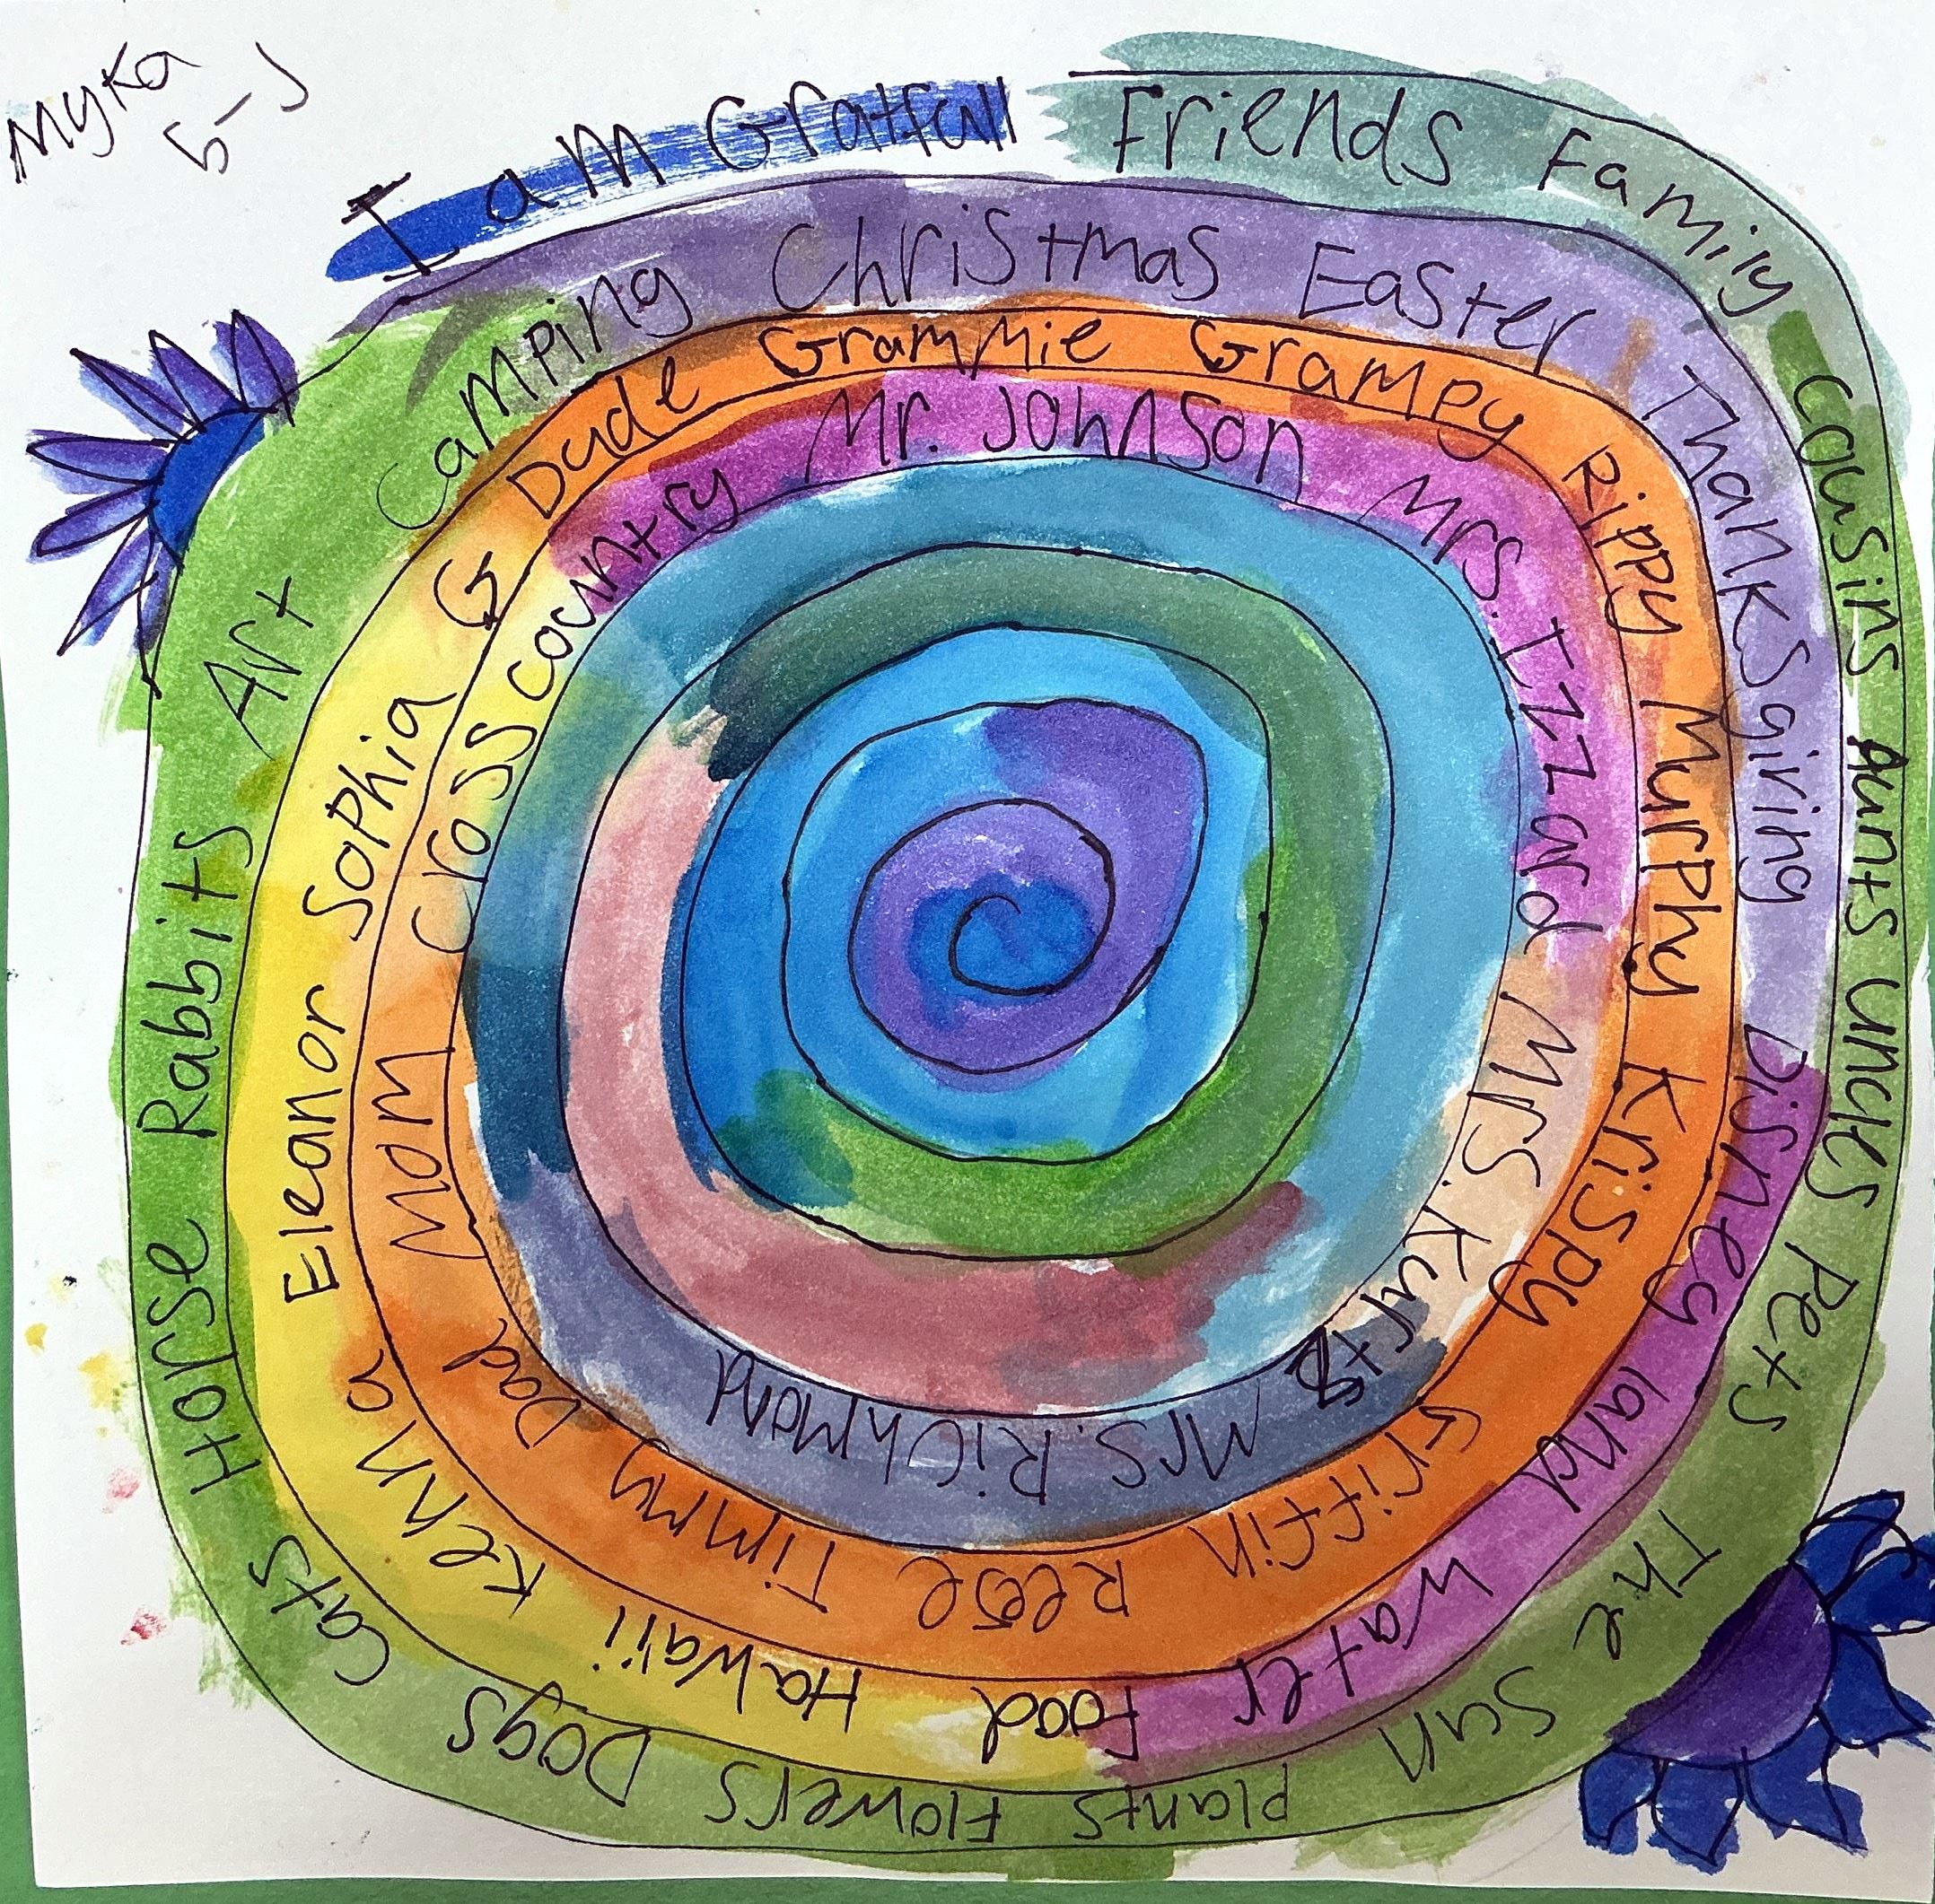 Myka
5-J
I am Gratfull Friends Family cousins Aunts uncles Pets The Sun plants Flowers Dogs Cats Horse Rabbits Art
Camping Christmas Easter Thanksgiving Disney land Water Food Hawaii Kenna Eleanor Sophia G
Dude Grammie Grampy Rippy Murphy Krispy Griffin Reese Timmy Dad Mom Cross country
Mr. Johnson Mrs. Izzard Mrs. Kurts Mrs. Richmond